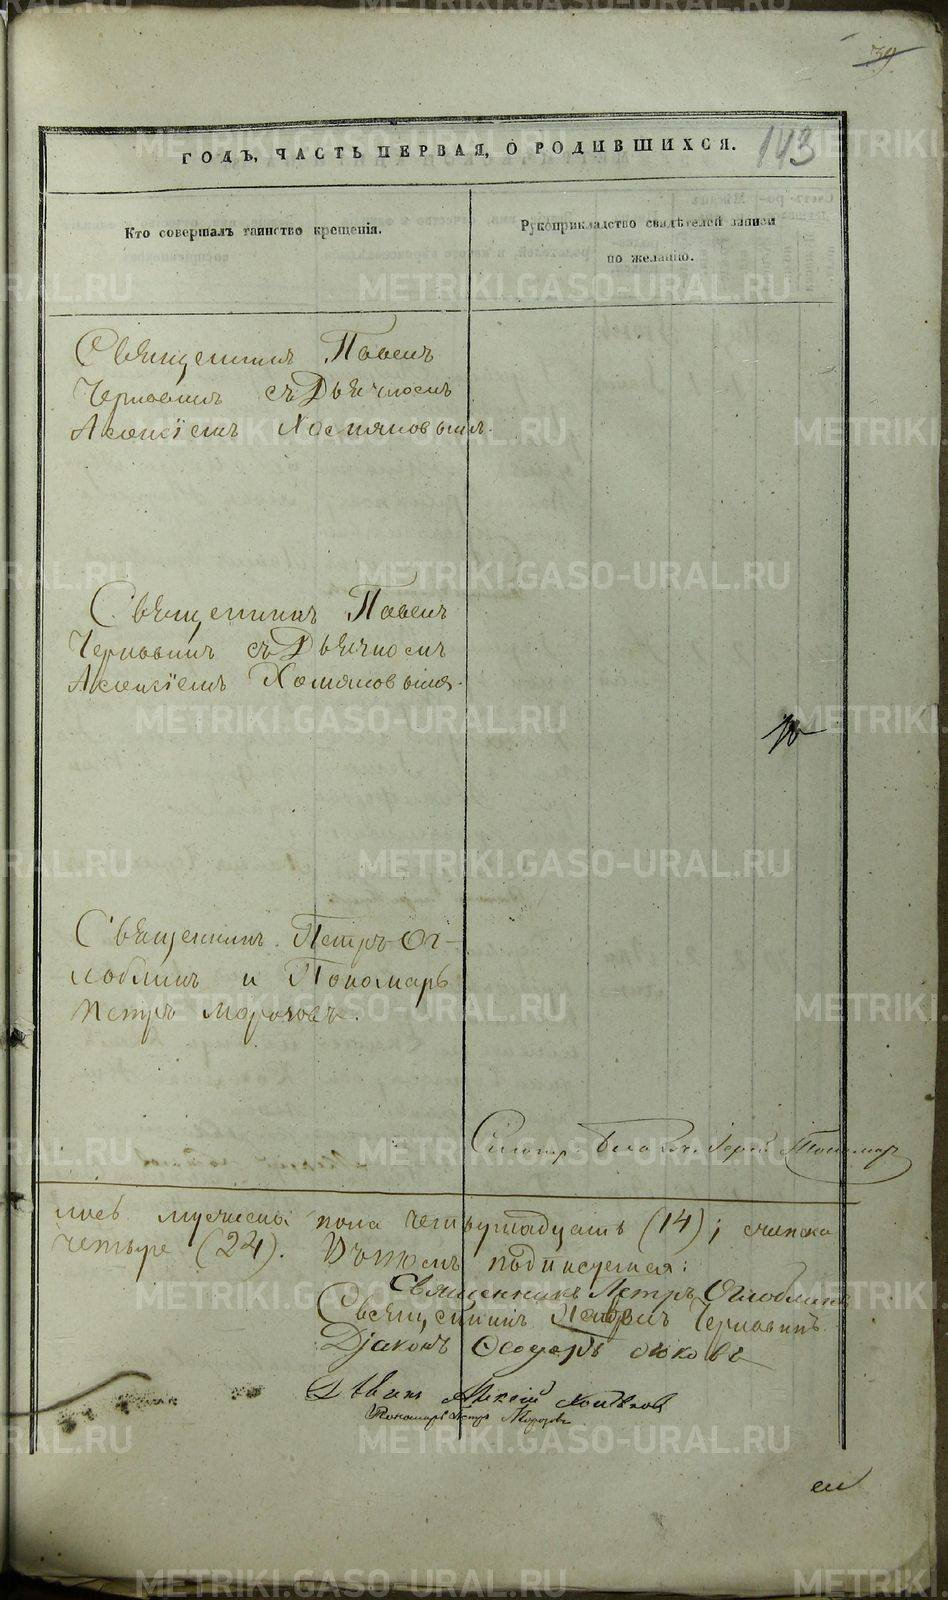 39
143
ГОДЪ, ЧАСТЬ ПЕРВАЯ, О РОДИВШИХСЯ.
Кто совершалъ таинство крещенія.
Рукоприкладство свидѣтелей записи
по желанію.
Священникъ Павелъ
Чернавинъ съ Дьячкомъ
Алексіемъ Хомяковымъ.
Священникъ Павелъ
Чернавинъ съ Дьячкомъ
Алексіемъ Хомяковымъ.
Священникъ Петръ Ог-
лоблинъ и Пономарь
Петръ Морозовъ.
мужеска пола четырнадцать (14); женска
четыре (24). Въ томъ подписуемся:
Священникъ Петръ Оглоблинъ
Священникъ Чернавинъ
Діаконъ Ѳеодоръ
Алексій Хомяковъ
Пономарь Петръ Морозовъ
METRIKI.GASO-URAL.RU